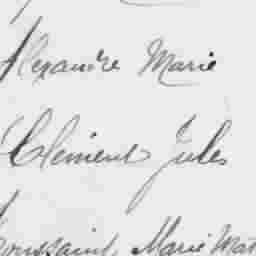 Alexandre Marie
Clément Jules
Toussaint, Marie Mat